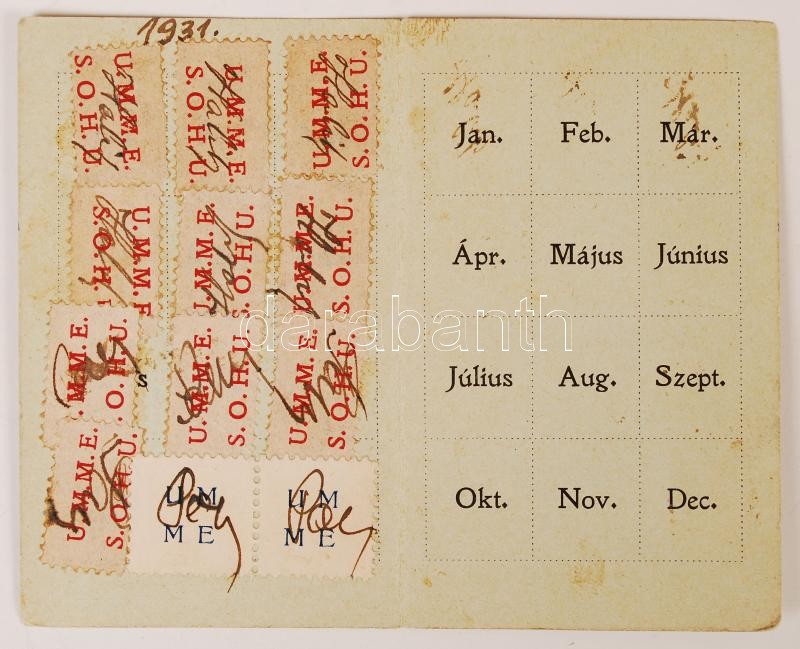 1931.
U.M.M.E.
S.O.H.U.
U.M.M.E.
S.O.H.U.
U.M.M.E.
S.O.H.U.
U.M.M.E
S.O.H.
.M.M.E.
S.O.H.U.
U.M.M.E.
S.O.H.U.
.M.M.E.
.O.H.U.
s
U.M.M.E.
S.O.H.U.
U.M.M.E.
S.O.H.U.
U.M.M.E.
S.O.H.U.
U M
M E
U M
M E
Jan. Feb. Már.
Ápr. Május Június
Július Aug. Szept.
Okt. Nov. Dec.
darabanth